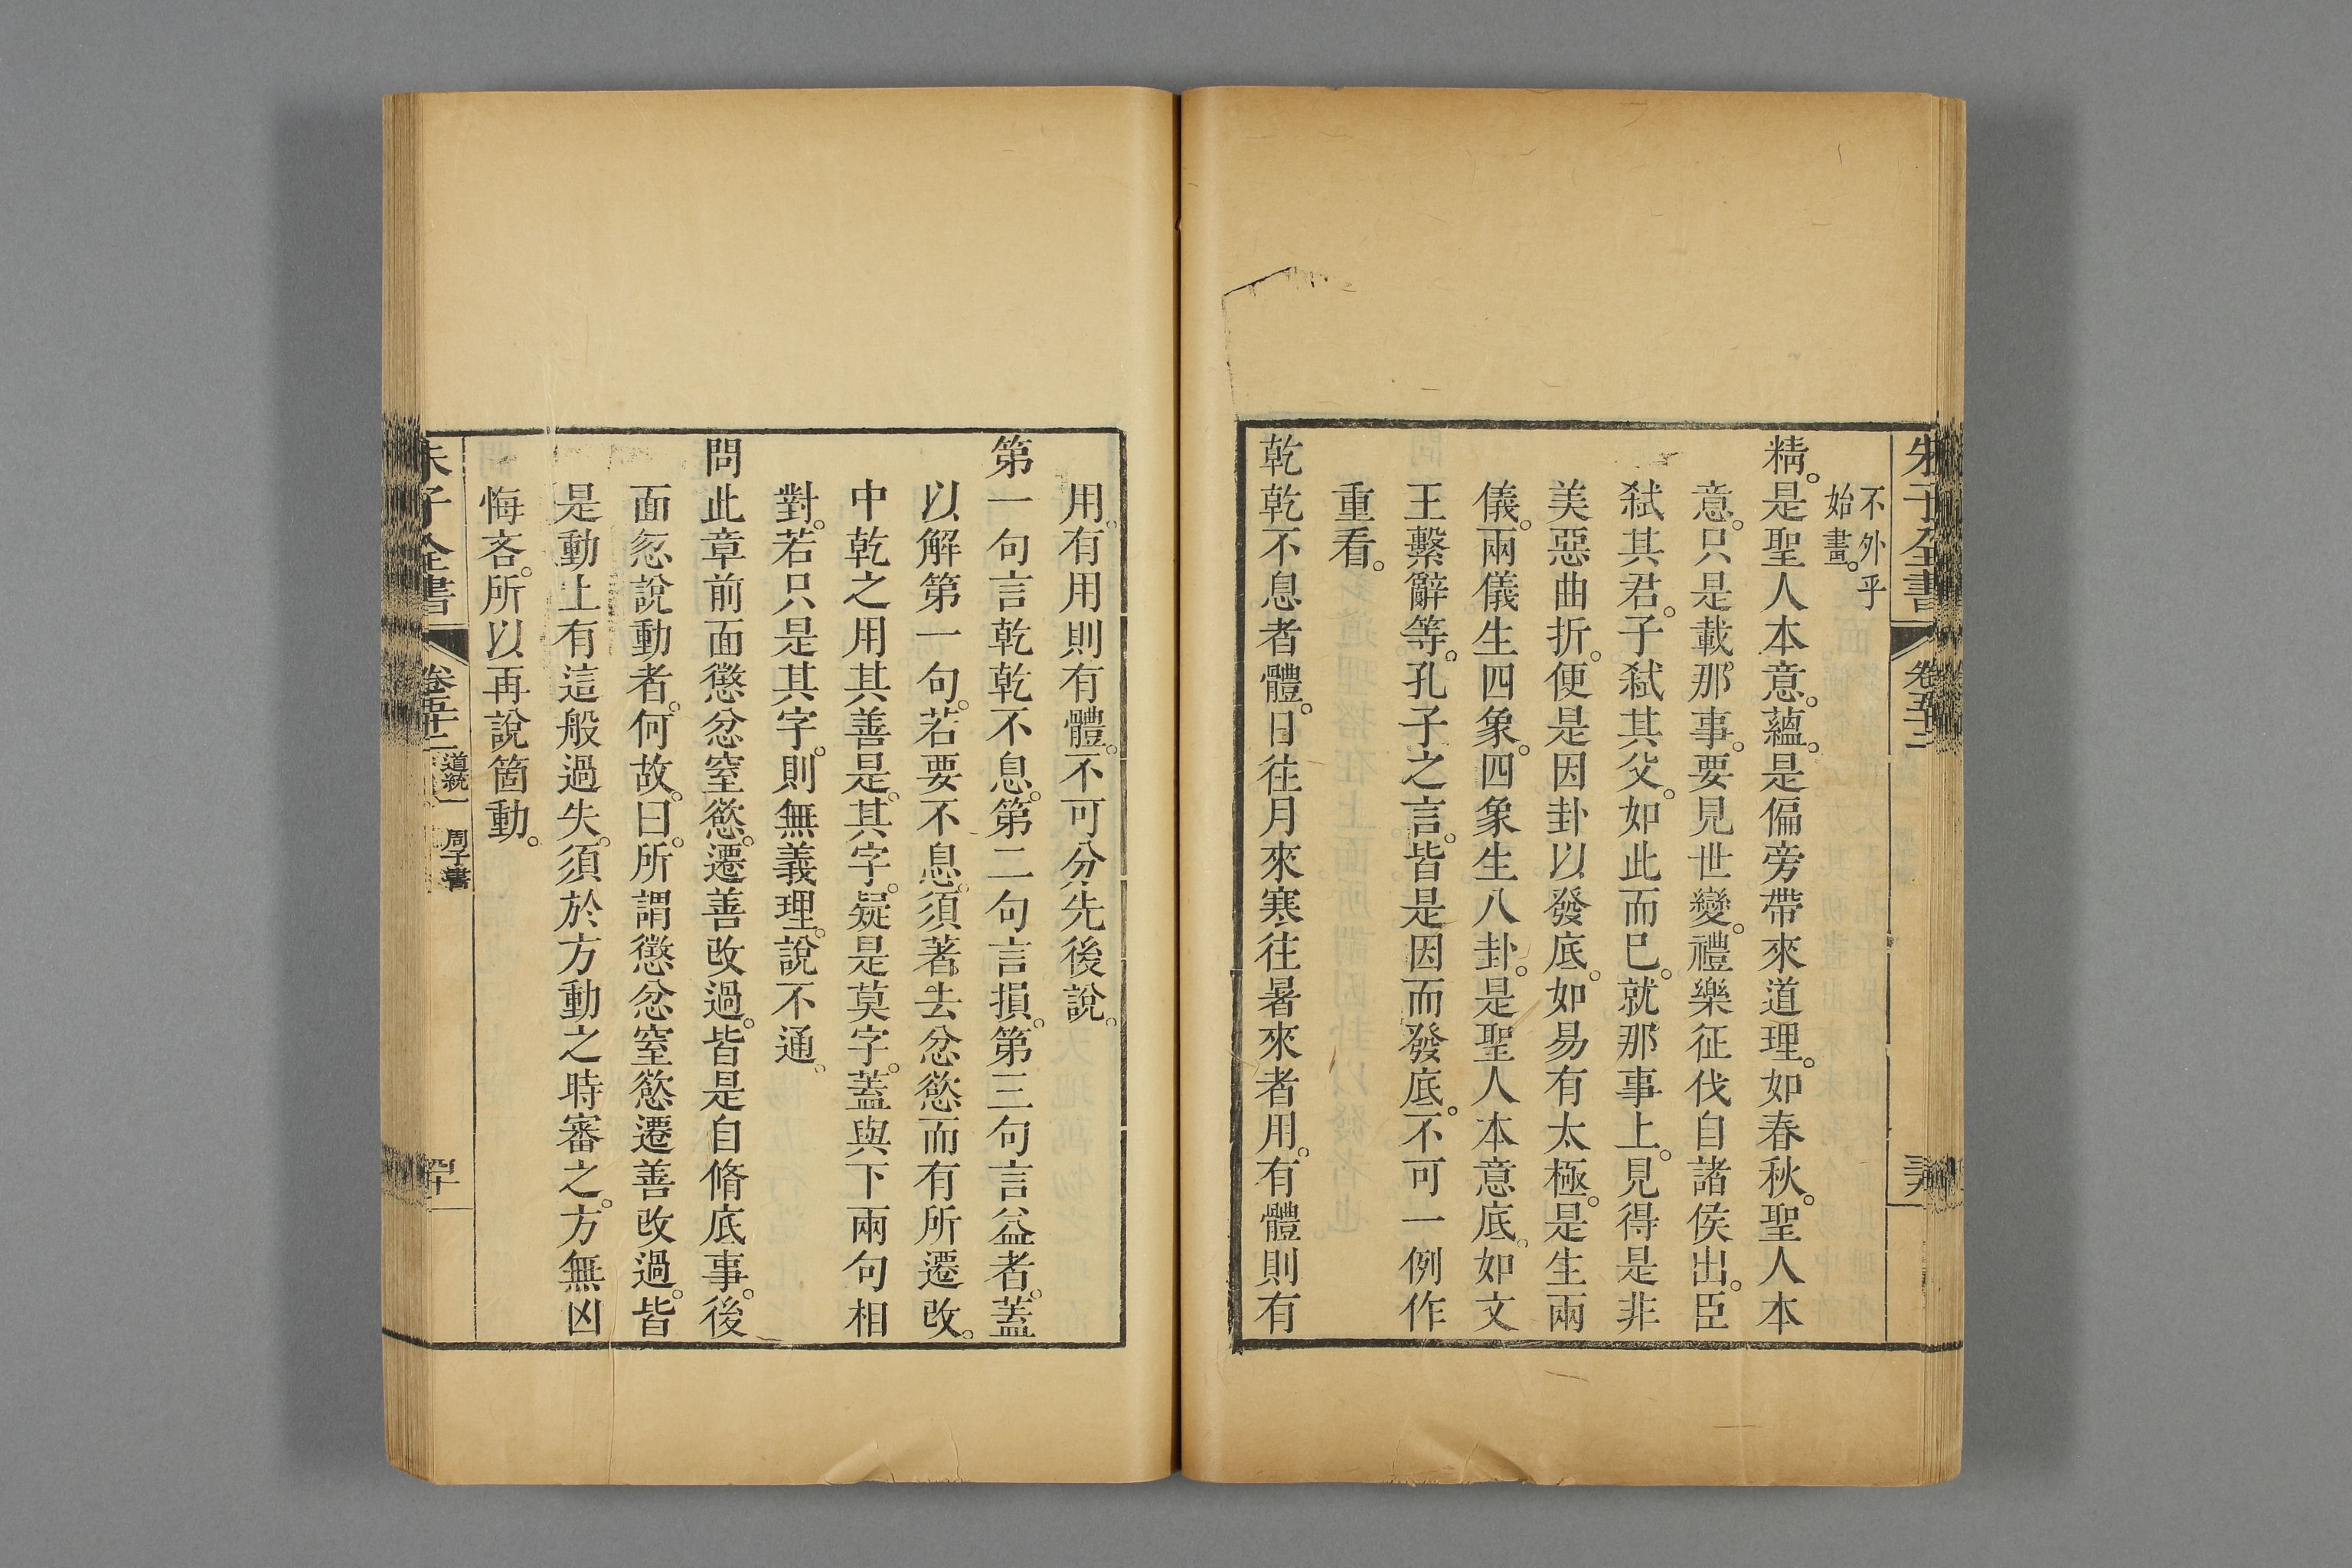 朱子全書 卷五十二
不外乎
始畫。
精。是聖人本意。蘊。是偏旁帶來道理。如春秋。聖人本
意。只是載那事。要見世變。禮樂征伐自諸侯出。臣
弑其君。子弑其父。如此而已。就那事上。見得是非
美惡曲折。便是因卦以發底。如易有太極。是生兩
儀。兩儀生四象。四象生八卦。是聖人本意底。如文
王繫辭等。孔子之言。皆是因而發底。不可一例作
重看。
乾乾不息者體。日往月來寒往暑來者用。有體則有
用。有用則有體。不可分先後說。
第一句言乾乾不息。第二句言損。第三句言益者。蓋
以解第一句。若要不息。須著去忿慾而有所遷改。
中乾之用其善是。其字。疑是莫字。蓋與下兩句相
對。若只是其字。則無義理。說不通。
問此章前面懲忿窒慾。遷善改過。皆是自脩底事。後
面忽說動者。何故。曰。所謂懲忿窒慾遷善改過。皆
是動上有這般過失。須於方動之時審之。方無凶
悔吝。所以再說箇動。
朱子全書 卷五十二 道統一 周子書 四十